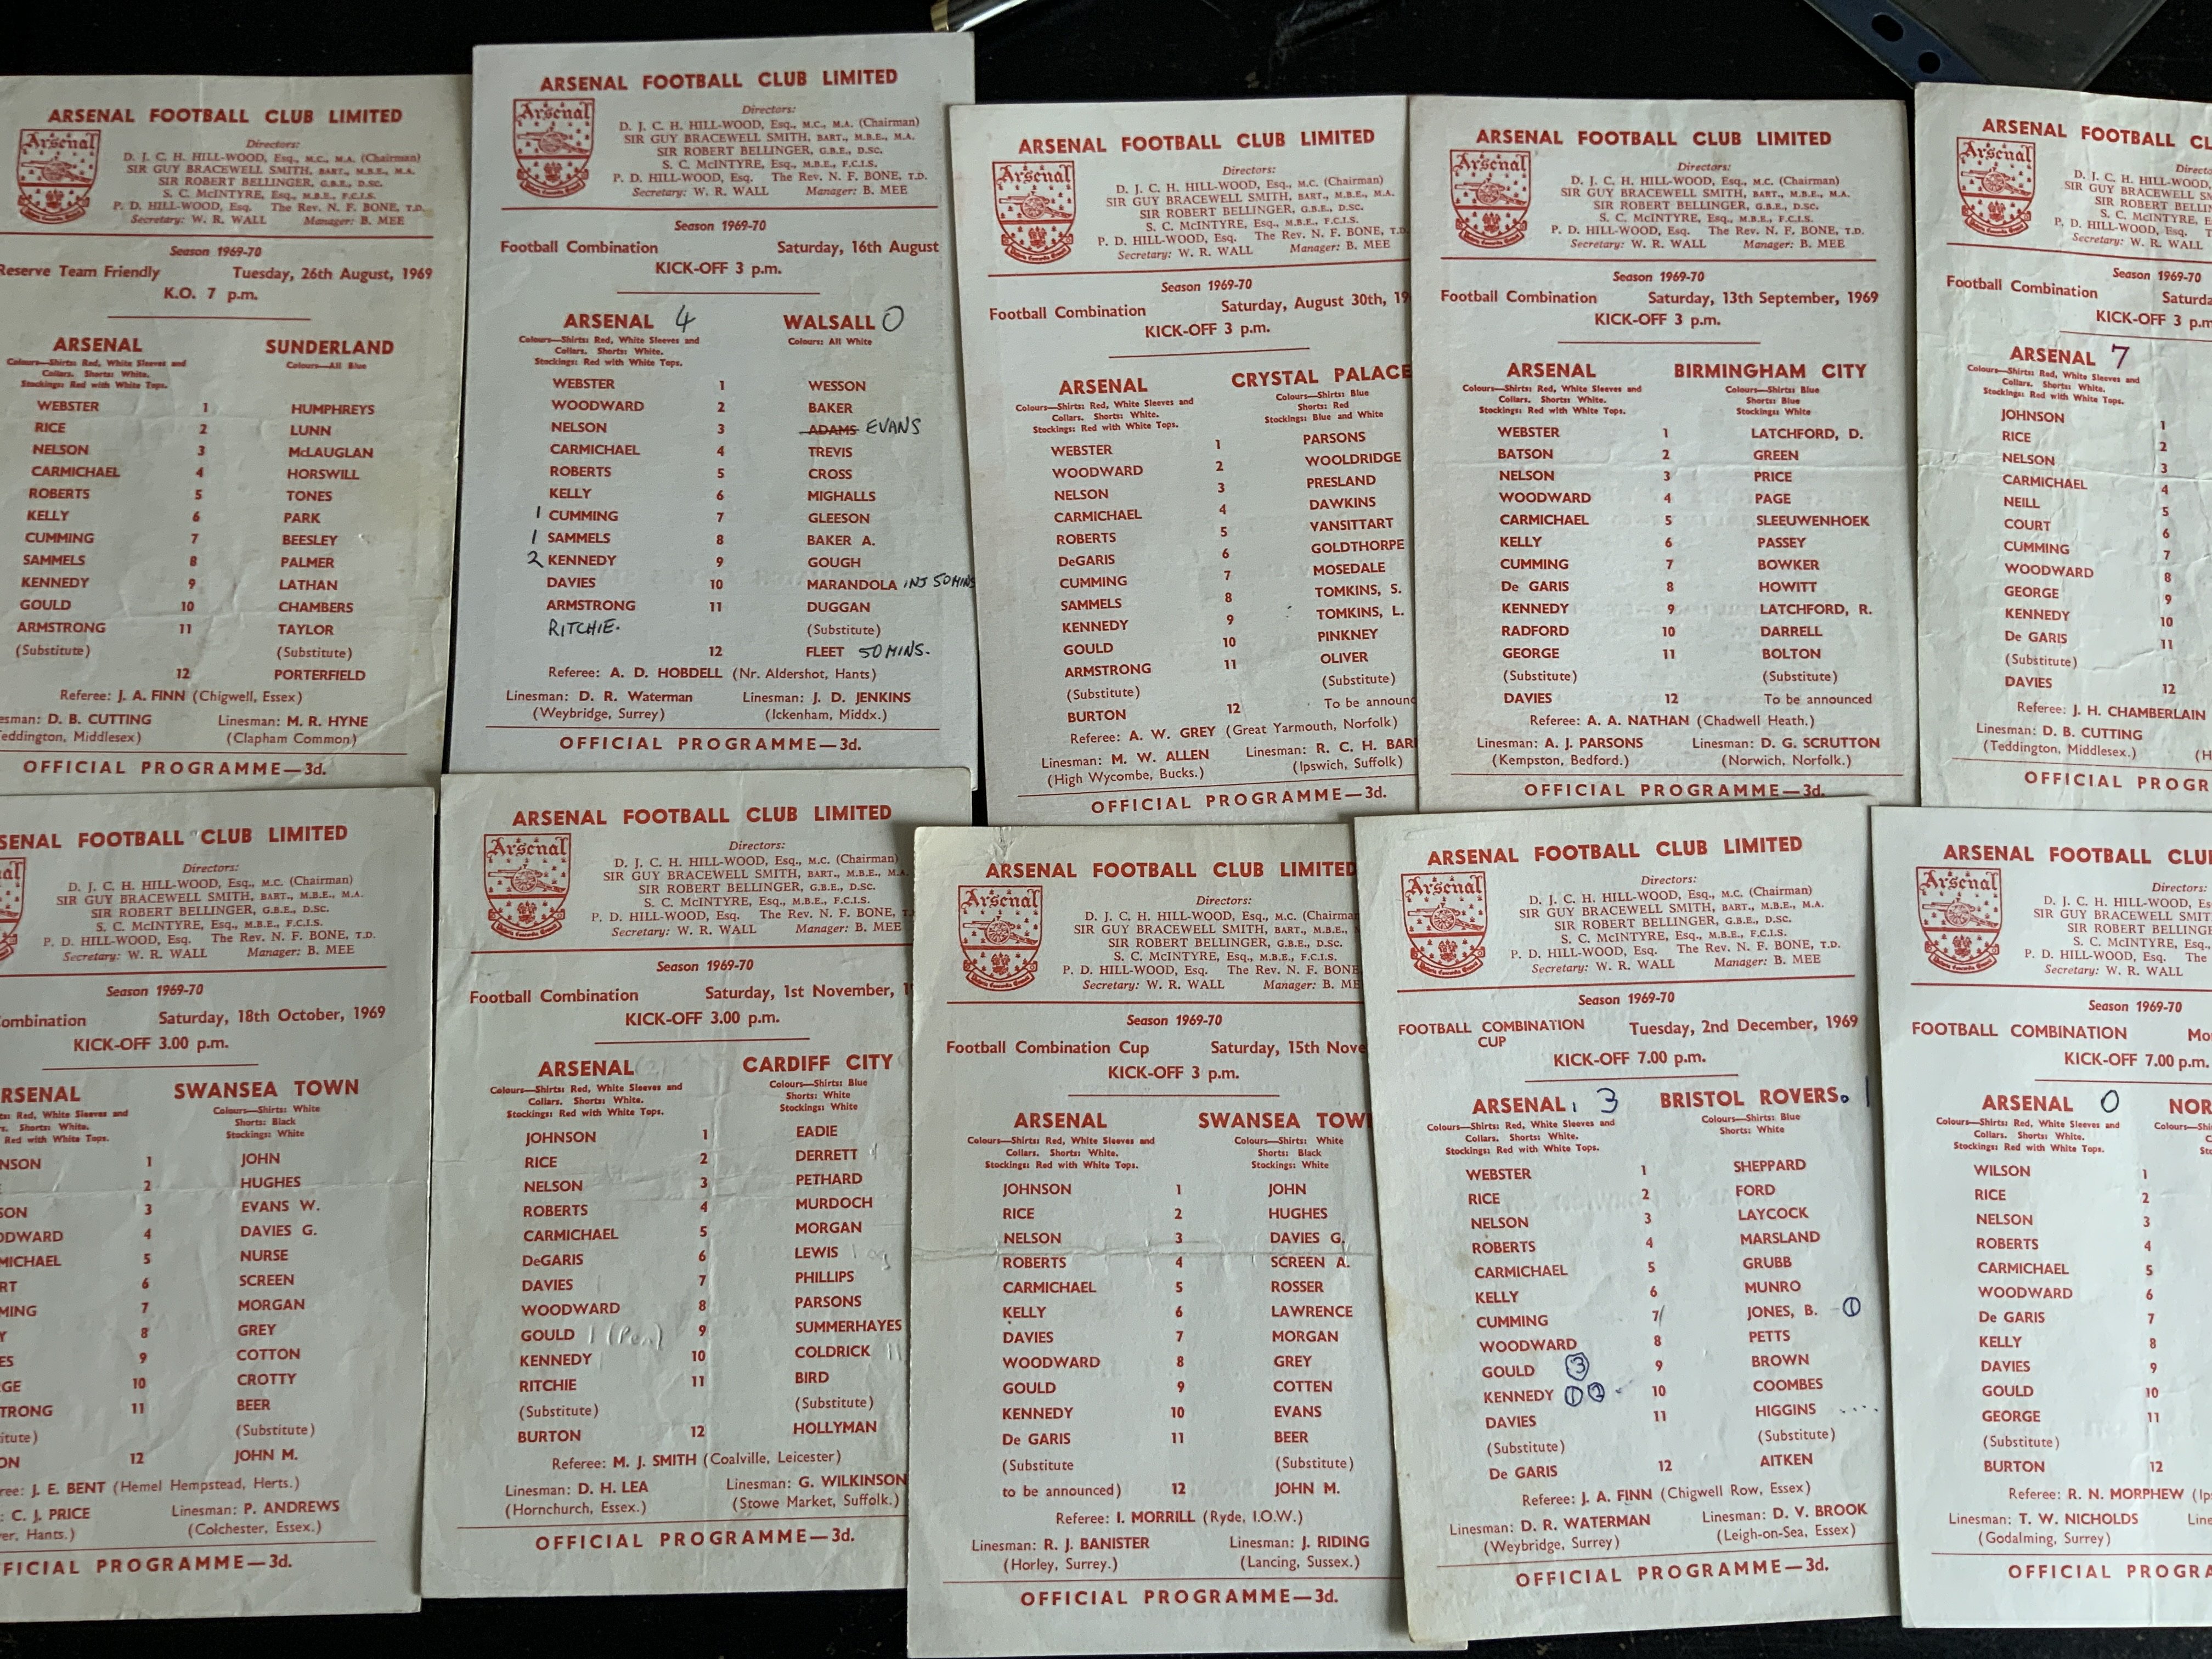 ARSENAL FOOTBALL CLUB LIMITED
Arsenal
Directors:
D. J. C. H. HILL-WOOD, Esq., M.C., M.A. (Chairman)
SIR GUY BRACEWELL SMITH, BART., M.B.E., M.A.
SIR ROBERT BELLINGER, G.B.E., D.SC.
S. C. McINTYRE, Esq., M.B.E., F.C.I.S.
P. D. HILL-WOOD, Esq. The Rev. N. F. BONE, T.D.
Secretary: W. R. WALL Manager: B. MEE
Season 1969-70
Reserve Team Friendly Tuesday, 26th August, 1969
K.O. 7 p.m.
ARSENAL SUNDERLAND
Colours—Shirts: Red, White Sleeves and Colours—All Blue
Collars. Shorts: White.
Stockings: Red with White Tops.
WEBSTER 1 HUMPHREYS
RICE 2 LUNN
NELSON 3 McLAUGLAN
CARMICHAEL 4 HORSWILL
ROBERTS 5 TONES
KELLY 6 PARK
CUMMING 7 BEESLEY
SAMMELS 8 PALMER
KENNEDY 9 LATHAN
GOULD 10 CHAMBERS
ARMSTRONG 11 TAYLOR
(Substitute) (Substitute)
12 PORTERFIELD
Referee: J. A. FINN (Chigwell, Essex)
esman: D. B. CUTTING Linesman: M. R. HYNE
eddington, Middlesex) (Clapham Common)
OFFICIAL PROGRAMME—3d.
ARSENAL FOOTBALL CLUB LIMITED
Arsenal
Directors:
D. J. C. H. HILL-WOOD, Esq., M.C., M.A. (Chairman)
SIR GUY BRACEWELL SMITH, BART., M.B.E., M.A.
SIR ROBERT BELLINGER, G.B.E., D.SC.
S. C. McINTYRE, Esq., M.B.E., F.C.I.S.
P. D. HILL-WOOD, Esq. The Rev. N. F. BONE, T.D.
Secretary: W. R. WALL Manager: B. MEE
Season 1969-70
Football Combination Saturday, 16th August
KICK-OFF 3 p.m.
ARSENAL 4 WALSALL 0
Colours—Shirts: Red, White Sleeves and Colours: All White
Collars. Shorts: White.
Stockings: Red with White Tops.
WEBSTER 1 WESSON
WOODWARD 2 BAKER
NELSON 3 ADAMS EVANS
CARMICHAEL 4 TREVIS
ROBERTS 5 CROSS
KELLY 6 MIGHALLS
1 CUMMING 7 GLEESON
1 SAMMELS 8 BAKER A.
2 KENNEDY 9 GOUGH
DAVIES 10 MARANDOLA INJ 50 MINS
ARMSTRONG 11 DUGGAN
RITCHIE. (Substitute)
12 FLEET 50 MINS.
Referee: A. D. HOBDELL (Nr. Aldershot, Hants)
Linesman: D. R. Waterman Linesman: J. D. JENKINS
(Weybridge, Surrey) (Ickenham, Middx.)
OFFICIAL PROGRAMME—3d.
ARSENAL FOOTBALL CLUB LIMITED
Arsenal
Directors:
D. J. C. H. HILL-WOOD, Esq., M.C. (Chairman)
SIR GUY BRACEWELL SMITH, BART., M.B.E., M.A.
SIR ROBERT BELLINGER, G.B.E., D.SC.
S. C. McINTYRE, Esq., M.B.E., F.C.I.S.
P. D. HILL-WOOD, Esq. The Rev. N. F. BONE, T.D.
Secretary: W. R. WALL Manager: B. MEE
Season 1969-70
Football Combination Saturday, August 30th, 19
KICK-OFF 3 p.m.
ARSENAL CRYSTAL PALACE
Colours—Shirts: Red, White Sleeves and Colours—Shirts: Blue
Collars. Shorts: White. Shorts: Red
Stockings: Red with White Tops. Stockings: Blue and White
WEBSTER 1 PARSONS
WOODWARD 2 WOOLDRIDGE
NELSON 3 PRESLAND
CARMICHAEL 4 DAWKINS
ROBERTS 5 VANSITTART
DeGARIS 6 GOLDTHORPE
CUMMING 7 MOSEDALE
SAMMELS 8 TOMKINS, S.
KENNEDY 9 TOMKINS, L.
GOULD 10 PINKNEY
ARMSTRONG 11 OLIVER
(Substitute) (Substitute)
BURTON 12 To be announc
Referee: A. W. GREY (Great Yarmouth, Norfolk)
Linesman: M. W. ALLEN Linesman: R. C. H. BAR
(High Wycombe, Bucks.) (Ipswich, Suffolk)
OFFICIAL PROGRAMME—3d.
ARSENAL FOOTBALL CLUB LIMITED
Arsenal
Directors:
D. J. C. H. HILL-WOOD, Esq., M.C. (Chairman)
SIR GUY BRACEWELL SMITH, BART., M.B.E., M.A.
SIR ROBERT BELLINGER, G.B.E., D.SC.
S. C. McINTYRE, Esq., M.B.E., F.C.I.S.
P. D. HILL-WOOD, Esq. The Rev. N. F. BONE, T.D.
Secretary: W. R. WALL Manager: B. MEE
Season 1969-70
Football Combination Saturday, 13th September, 1969
KICK-OFF 3 p.m.
ARSENAL BIRMINGHAM CITY
Colours—Shirts: Red, White Sleeves and Colours—Shirts: Blue
Collars. Shorts: White. Shorts: Blue
Stockings: Red with White Tops. Stockings: White
WEBSTER 1 LATCHFORD, D.
BATSON 2 GREEN
NELSON 3 PRICE
WOODWARD 4 PAGE
CARMICHAEL 5 SLEEUWENHOEK
KELLY 6 PASSEY
CUMMING 7 BOWKER
De GARIS 8 HOWITT
KENNEDY 9 LATCHFORD, R.
RADFORD 10 DARRELL
GEORGE 11 BOLTON
(Substitute) (Substitute)
DAVIES 12 To be announced
Referee: A. A. NATHAN (Chadwell Heath.)
Linesman: A. J. PARSONS Linesman: D. G. SCRUTTON
(Kempston, Bedford.) (Norwich, Norfolk.)
OFFICIAL PROGRAMME—3d.
ARSENAL FOOTBALL CL
Arsenal
Directo
D. J. C. H. HILL-WOOD,
SIR GUY BRACEWELL SM
SIR ROBERT BELLIN
S. C. McINTYRE, E
P. D. HILL-WOOD, Esq.
Secretary: W. R. WALL
Season 1969-70
Football Combination Saturda
KICK-OFF 3 p.m
ARSENAL 7
Colours—Shirts: Red, White Sleeves and
Collars. Shorts: White.
Stockings: Red with White Tops.
JOHNSON 1
RICE 2
NELSON 3
CARMICHAEL 4
NEILL 5
COURT 6
CUMMING 7
WOODWARD 8
GEORGE 9
KENNEDY 10
De GARIS 11
(Substitute)
DAVIES 12
Referee: J. H. CHAMBERLAIN
Linesman: D. B. CUTTING
(Teddington, Middlesex.) (H
OFFICIAL PROGR
SENAL FOOTBALL CLUB LIMITED
Directors:
D. J. C. H. HILL-WOOD, Esq., M.C. (Chairman)
SIR GUY BRACEWELL SMITH, BART., M.B.E., M.A.
SIR ROBERT BELLINGER, G.B.E., D.SC.
S. C. McINTYRE, Esq., M.B.E., F.C.I.S.
P. D. HILL-WOOD, Esq. The Rev. N. F. BONE, T.D.
Secretary: W. R. WALL Manager: B. MEE
Season 1969-70
ombination Saturday, 18th October, 1969
KICK-OFF 3.00 p.m.
RSENAL SWANSEA TOWN
ts: Red, White Sleeves and Colours—Shirts: White
s. Shorts: White. Shorts: Black
Red with White Tops. Stockings: White
NSON 1 JOHN
2 HUGHES
SON 3 EVANS W.
ODWARD 4 DAVIES G.
MICHAEL 5 NURSE
RT 6 SCREEN
MING 7 MORGAN
Y 8 GREY
ES 9 COTTON
GE 10 CROTTY
TRONG 11 BEER
itute) (Substitute)
ON 12 JOHN M.
ree: J. E. BENT (Hemel Hempstead, Herts.)
: C. J. PRICE Linesman: P. ANDREWS
er, Hants.) (Colchester, Essex.)
FICIAL PROGRAMME—3d.
ARSENAL FOOTBALL CLUB LIMITED
Arsenal
Directors:
D. J. C. H. HILL-WOOD, Esq., M.C. (Chairman)
SIR GUY BRACEWELL SMITH, BART., M.B.E., M.A.
SIR ROBERT BELLINGER, G.B.E., D.SC.
S. C. McINTYRE, Esq., M.B.E., F.C.I.S.
P. D. HILL-WOOD, Esq. The Rev. N. F. BONE, T.
Secretary: W. R. WALL Manager: B. MEE
Season 1969-70
Football Combination Saturday, 1st November, 1
KICK-OFF 3.00 p.m.
ARSENAL (2) CARDIFF CITY
Colours—Shirts: Red, White Sleeves and Colours—Shirts: Blue
Collars. Shorts: White. Shorts: White
Stockings: Red with White Tops. Stockings: White
JOHNSON 1 EADIE
RICE 2 DERRETT
NELSON 3 PETHARD
ROBERTS 4 MURDOCH
CARMICHAEL 5 MORGAN
DeGARIS 6 LEWIS
DAVIES 7 PHILLIPS
WOODWARD 8 PARSONS
GOULD 1 (Pen) 9 SUMMERHAYES
KENNEDY 10 COLDRICK
RITCHIE 11 BIRD
(Substitute) (Substitute)
BURTON 12 HOLLYMAN
Referee: M. J. SMITH (Coalville, Leicester)
Linesman: D. H. LEA Linesman: G. WILKINSON
(Hornchurch, Essex.) (Stowe Market, Suffolk.)
OFFICIAL PROGRAMME—3d.
ARSENAL FOOTBALL CLUB LIMITED
Arsenal
Directors:
D. J. C. H. HILL-WOOD, Esq., M.C. (Chairma
SIR GUY BRACEWELL SMITH, BART., M.B.E.,
SIR ROBERT BELLINGER, G.B.E., D.SC.
S. C. McINTYRE, Esq., M.B.E., F.C.I.S.
P. D. HILL-WOOD, Esq. The Rev. N. F. BONE
Secretary: W. R. WALL Manager: B. ME
Season 1969-70
Football Combination Cup Saturday, 15th Nove
KICK-OFF 3 p.m.
ARSENAL SWANSEA TOW
Colours—Shirts: Red, White Sleeves and Colours—Shirts: White
Collars. Shorts: White. Shorts: Black
Stockings: Red with White Tops. Stockings: White
JOHNSON 1 JOHN
RICE 2 HUGHES
NELSON 3 DAVIES G.
ROBERTS 4 SCREEN A.
CARMICHAEL 5 ROSSER
KELLY 6 LAWRENCE
DAVIES 7 MORGAN
WOODWARD 8 GREY
GOULD 9 COTTEN
KENNEDY 10 EVANS
De GARIS 11 BEER
(Substitute (Substitute)
to be announced) 12 JOHN M.
Referee: I. MORRILL (Ryde, I.O.W.)
Linesman: R. J. BANISTER Linesman: J. RIDING
(Horley, Surrey.) (Lancing, Sussex.)
OFFICIAL PROGRAMME—3d.
ARSENAL FOOTBALL CLUB LIMITED
Arsenal
Directors:
D. J. C. H. HILL-WOOD, Esq., M.C. (Chairman)
SIR GUY BRACEWELL SMITH, BART., M.B.E., M.A.
SIR ROBERT BELLINGER, G.B.E., D.SC.
S. C. McINTYRE, Esq., M.B.E., F.C.I.S.
P. D. HILL-WOOD, Esq. The Rev. N. F. BONE, T.D.
Secretary: W. R. WALL Manager: B. MEE
Season 1969-70
FOOTBALL COMBINATION Tuesday, 2nd December, 1969
CUP
KICK-OFF 7.00 p.m.
ARSENAL 1 3 BRISTOL ROVERS 0 1
Colours—Shirts: Red, White Sleeves and Colours—Shirts: Blue
Collars. Shorts: White. Shorts: White
Stockings: Red with White Tops.
WEBSTER 1 SHEPPARD
RICE 2 FORD
NELSON 3 LAYCOCK
ROBERTS 4 MARSLAND
CARMICHAEL 5 GRUBB
KELLY 6 MUNRO
CUMMING 7 JONES, B. 1
WOODWARD 8 PETTS
GOULD 3 9 BROWN
KENNEDY 1 2 10 COOMBES
DAVIES 11 HIGGINS
(Substitute) (Substitute)
De GARIS 12 AITKEN
Referee: J. A. FINN (Chigwell Row, Essex)
Linesman: D. R. WATERMAN Linesman: D. V. BROOK
(Weybridge, Surrey) (Leigh-on-Sea, Essex)
OFFICIAL PROGRAMME—3d.
ARSENAL FOOTBALL CLU
Arsenal
Directors:
D. J. C. H. HILL-WOOD, Es
SIR GUY BRACEWELL SMIT
SIR ROBERT BELLINGE
S. C. McINTYRE, Esq.,
P. D. HILL-WOOD, Esq. The
Secretary: W. R. WALL
Season 1969-70
FOOTBALL COMBINATION Mo
KICK-OFF 7.00 p.m.
ARSENAL 0 NOR
Colours—Shirts: Red, White Sleeves and Colours—Shi
Collars. Shorts: White.
Stockings: Red with White Tops.
WILSON 1
RICE 2
NELSON 3
ROBERTS 4
CARMICHAEL 5
WOODWARD 6
De GARIS 7
KELLY 8
DAVIES 9
GOULD 10
GEORGE 11
(Substitute)
BURTON 12
Referee: R. N. MORPHEW (Ip
Linesman: T. W. NICHOLS Line
(Godalming, Surrey)
OFFICIAL PROGRA